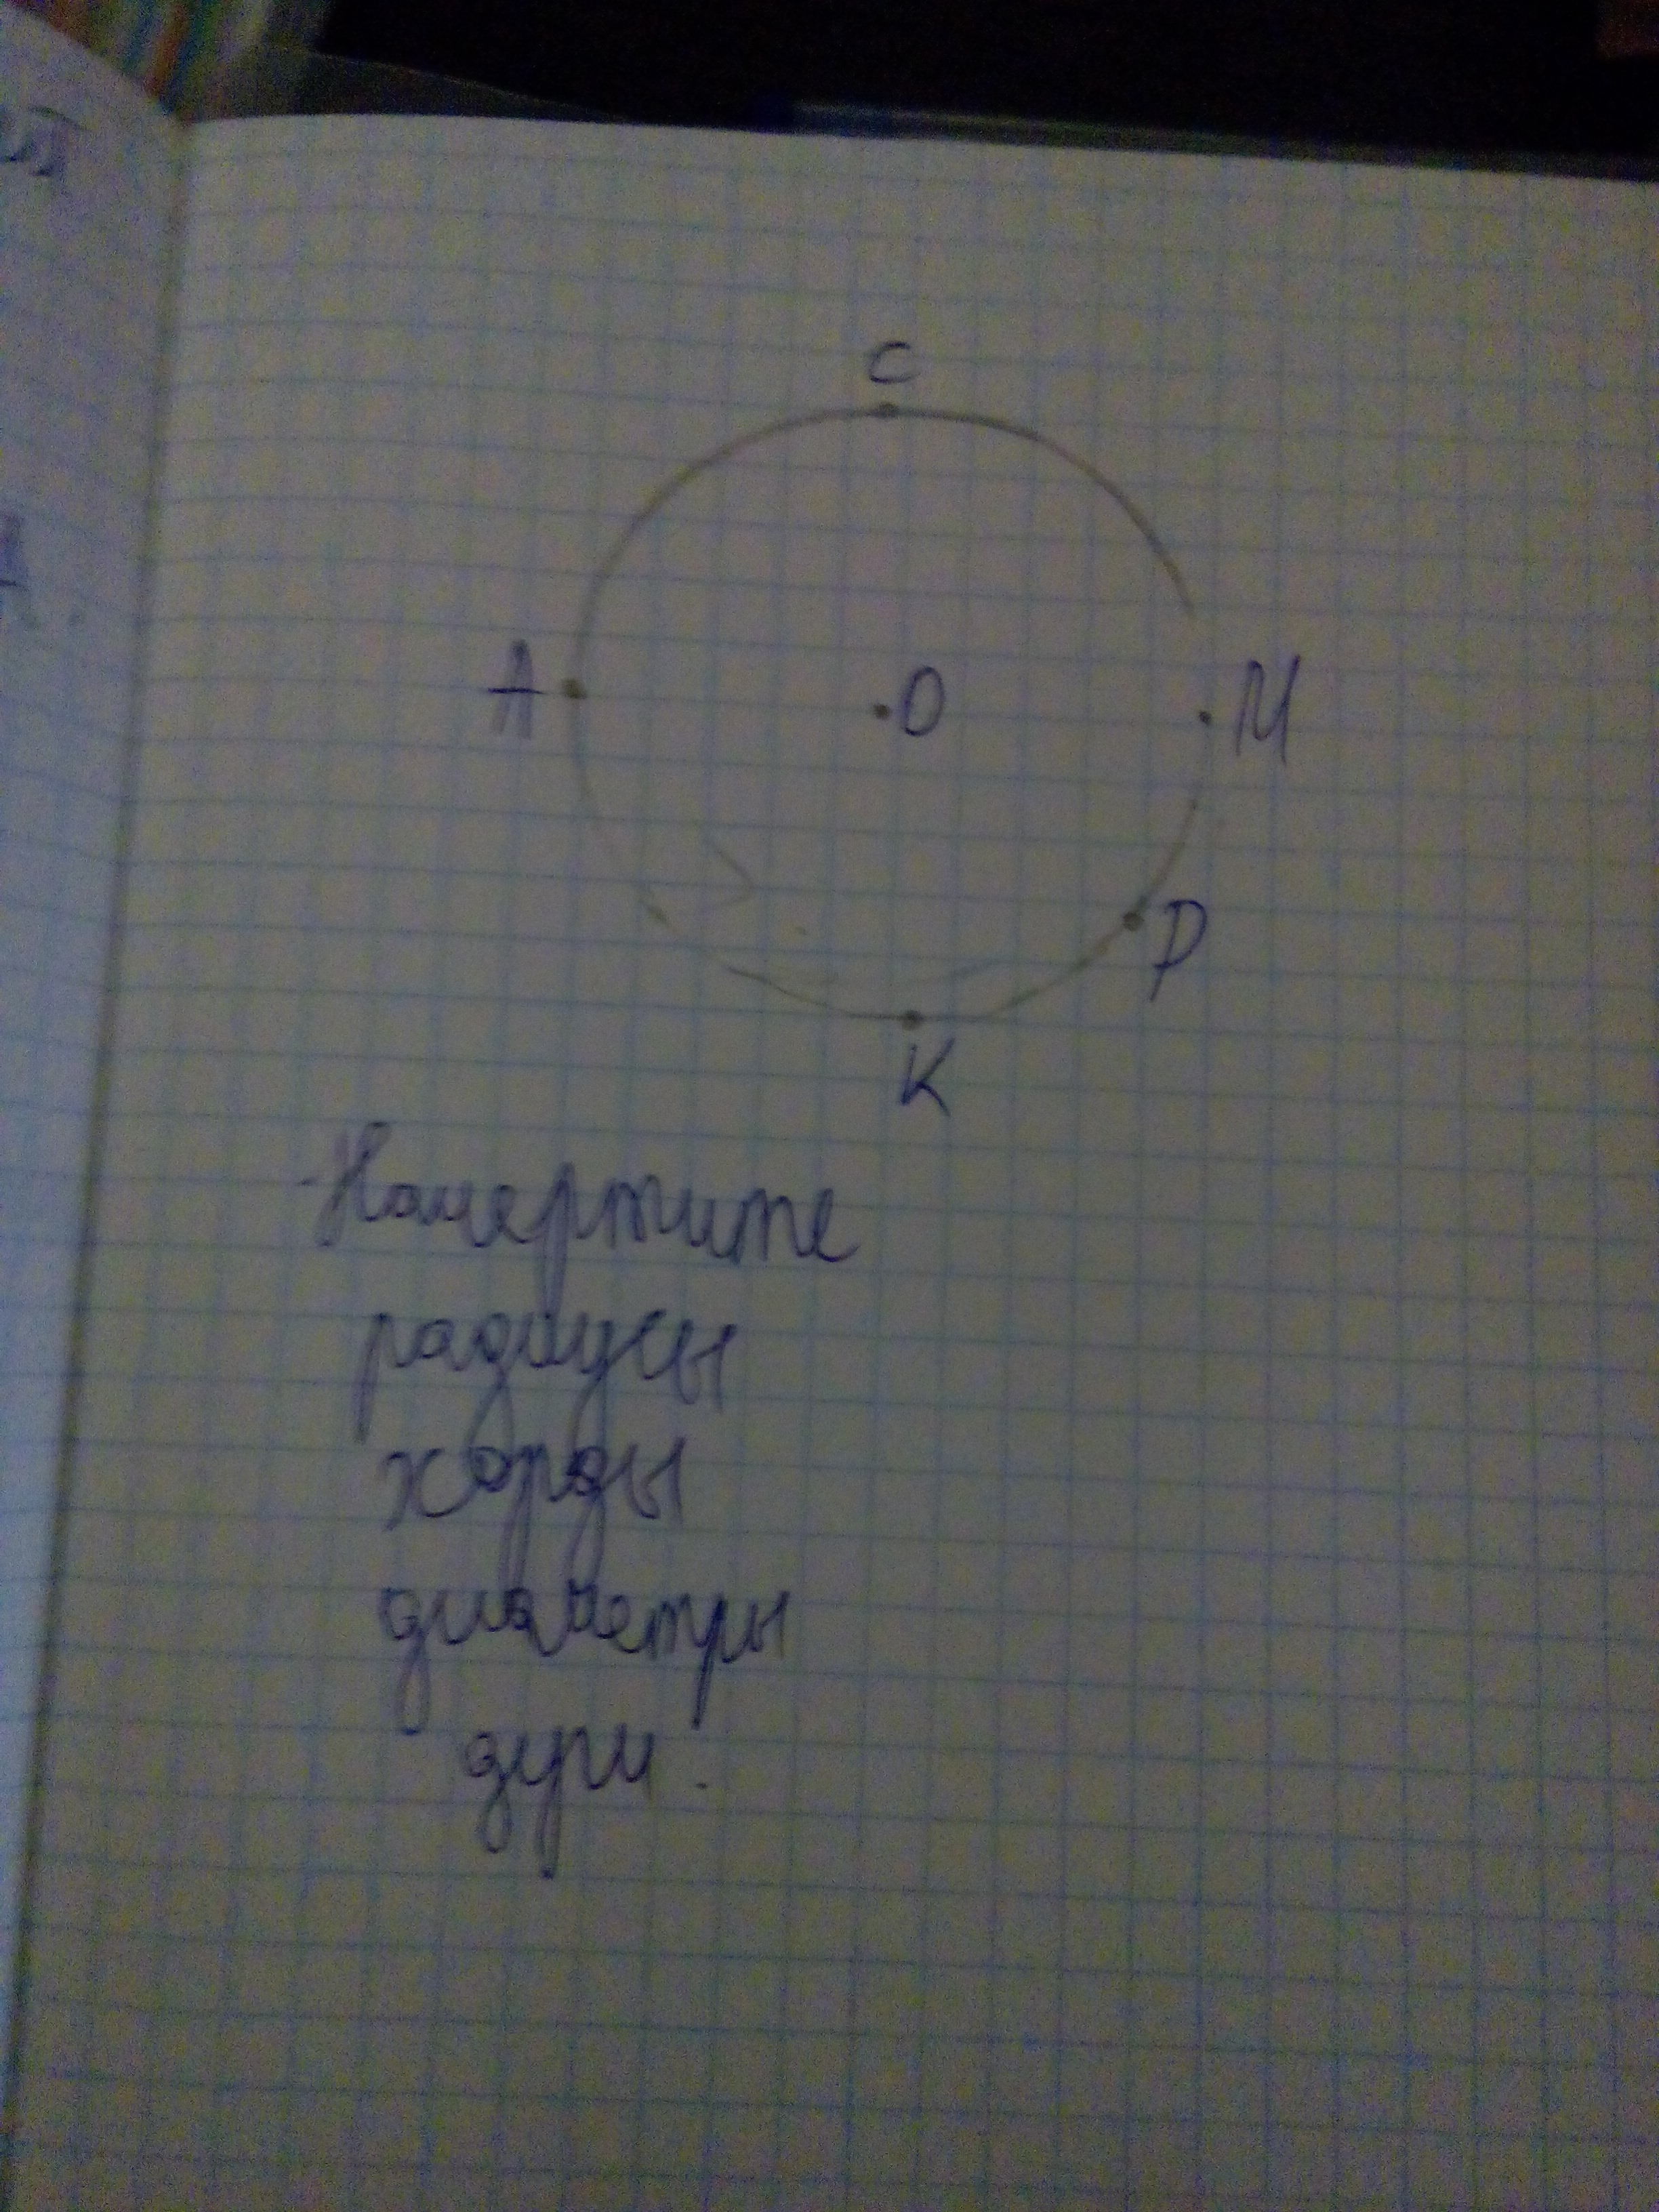 С
А
О
М
Р
К
Начертите
радиусы
хорды
диаметры
дуги.